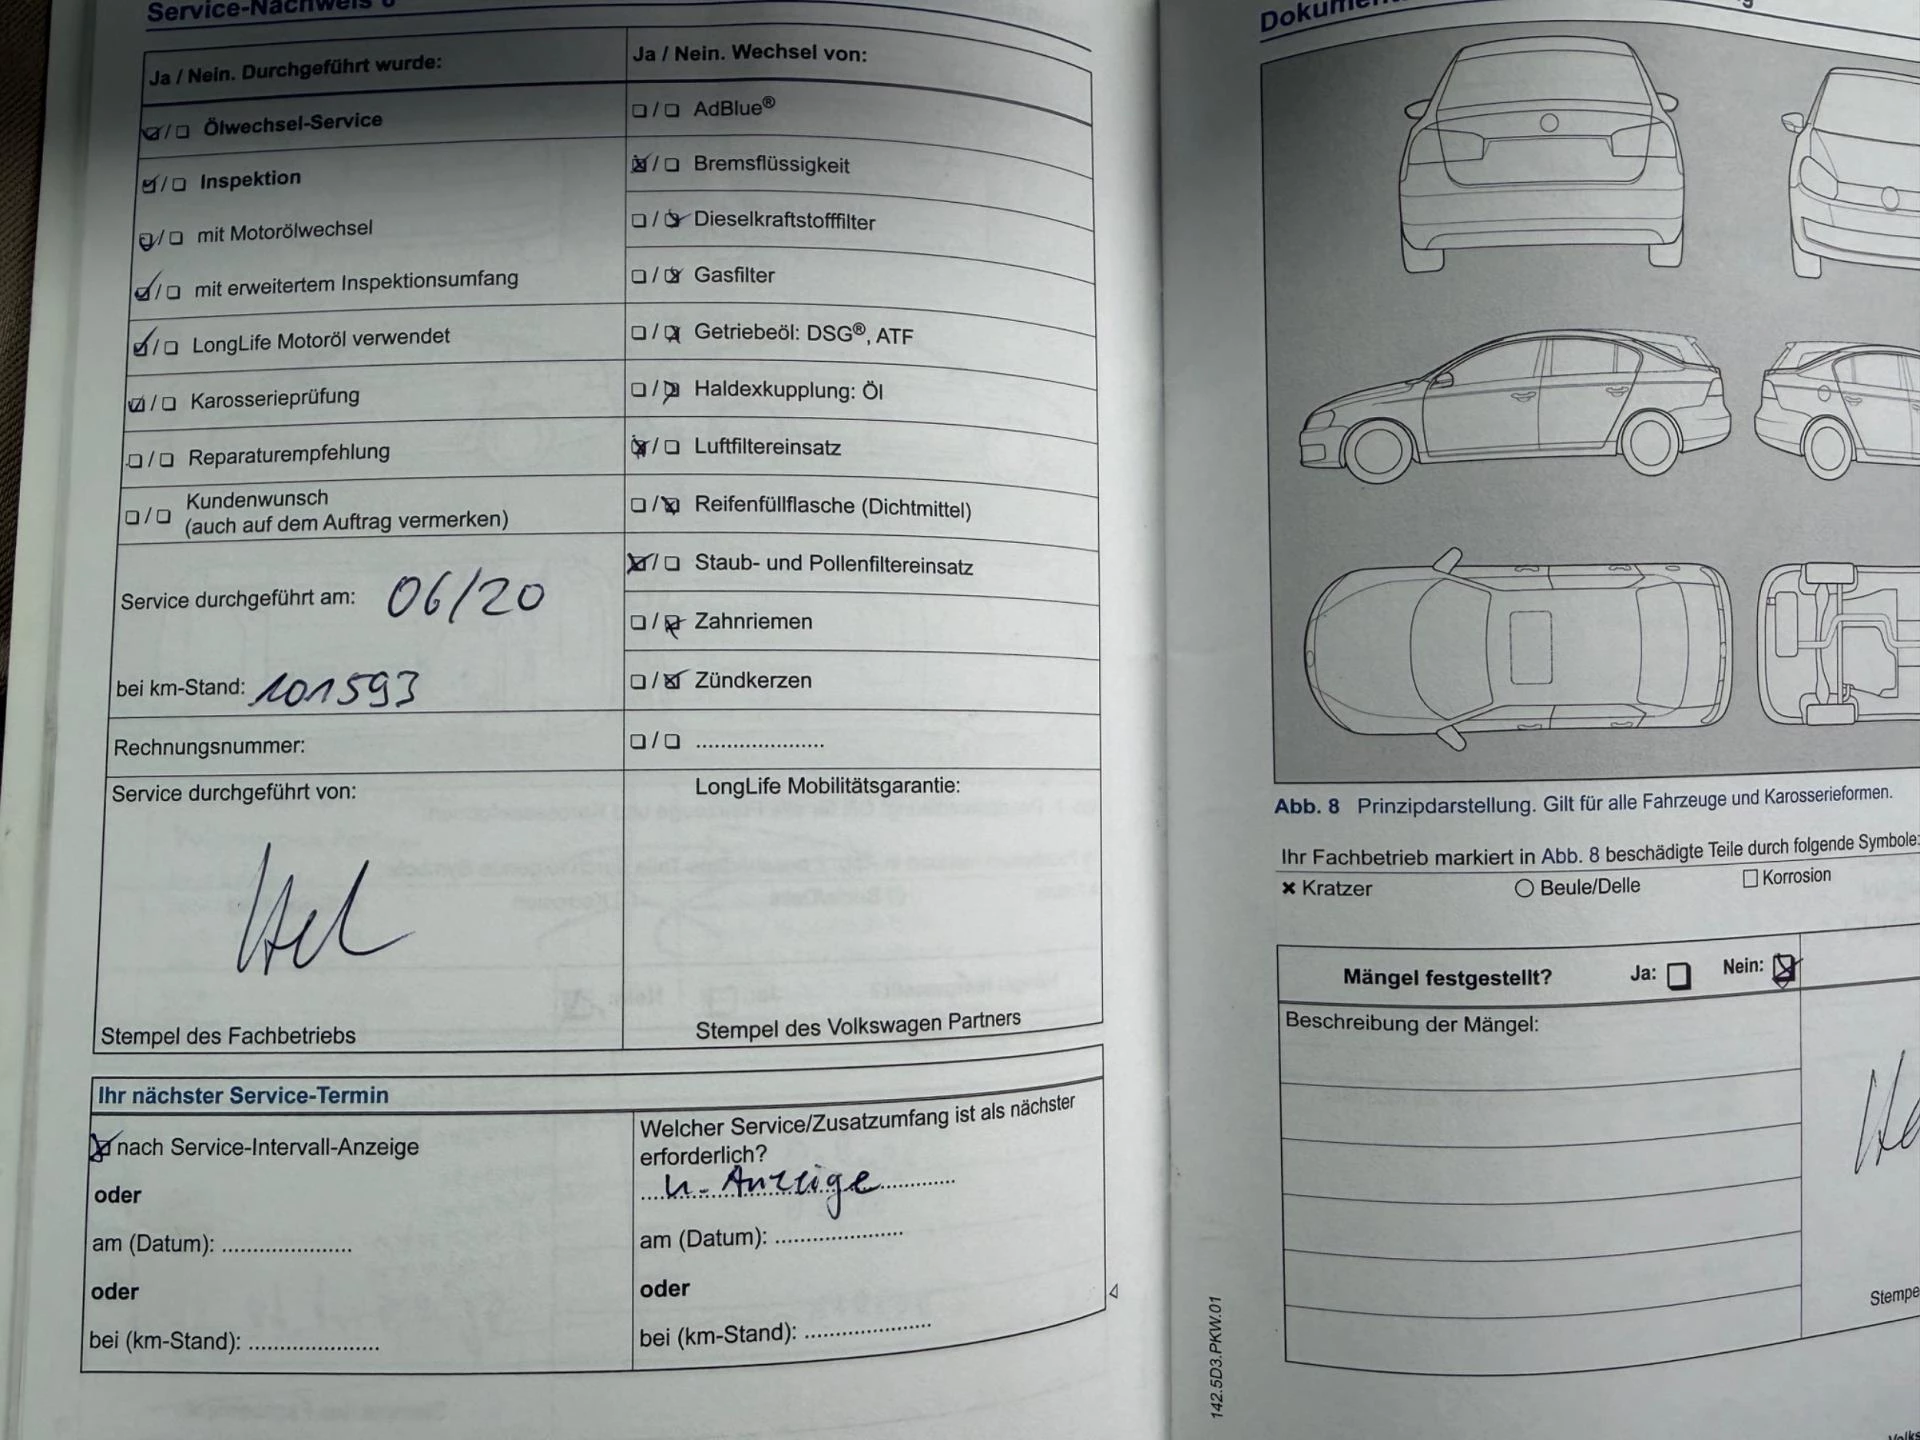 Service-Nachweis
Ja / Nein. Durchgeführt wurde:
☑/☐ Ölwechsel-Service
☑/☐ Inspektion
☑/☐ mit Motorölwechsel
☑/☐ mit erweitertem Inspektionsumfang
☑/☐ LongLife Motoröl verwendet
☑/☐ Karosserieprüfung
☐/☐ Reparaturempfehlung
☐/☐ Kundenwunsch
(auch auf dem Auftrag vermerken)
Service durchgeführt am: 06/20
bei km-Stand: 101593
Rechnungsnummer:
Service durchgeführt von:
Stempel des Fachbetriebs
Ja / Nein. Wechsel von:
☐/☐ AdBlue®
☒/☐ Bremsflüssigkeit
☐/☒ Dieselkraftstofffilter
☐/☒ Gasfilter
☐/☒ Getriebeöl: DSG®, ATF
☐/☒ Haldexkupplung: Öl
☒/☐ Luftfiltereinsatz
☐/☒ Reifenfüllflasche (Dichtmittel)
☒/☐ Staub- und Pollenfiltereinsatz
☐/☒ Zahnriemen
☐/☒ Zündkerzen
☐/☐ ......................
LongLife Mobilitätsgarantie:
Stempel des Volkswagen Partners
Ihr nächster Service-Termin
☒ nach Service-Intervall-Anzeige
oder
am (Datum): ......................
oder
bei (km-Stand): ......................
Welcher Service/Zusatzumfang ist als nächster
erforderlich?
n. Anzeige
am (Datum): ......................
oder
bei (km-Stand): ......................
Abb. 8 Prinzipdarstellung. Gilt für alle Fahrzeuge und Karosserieformen.
Ihr Fachbetrieb markiert in Abb. 8 beschädigte Teile durch folgende Symbole:
✖ Kratzer ○ Beule/Delle ☐ Korrosion
Mängel festgestellt? Ja: ☐ Nein: ☒
Beschreibung der Mängel:
142.5D3.PKW.01